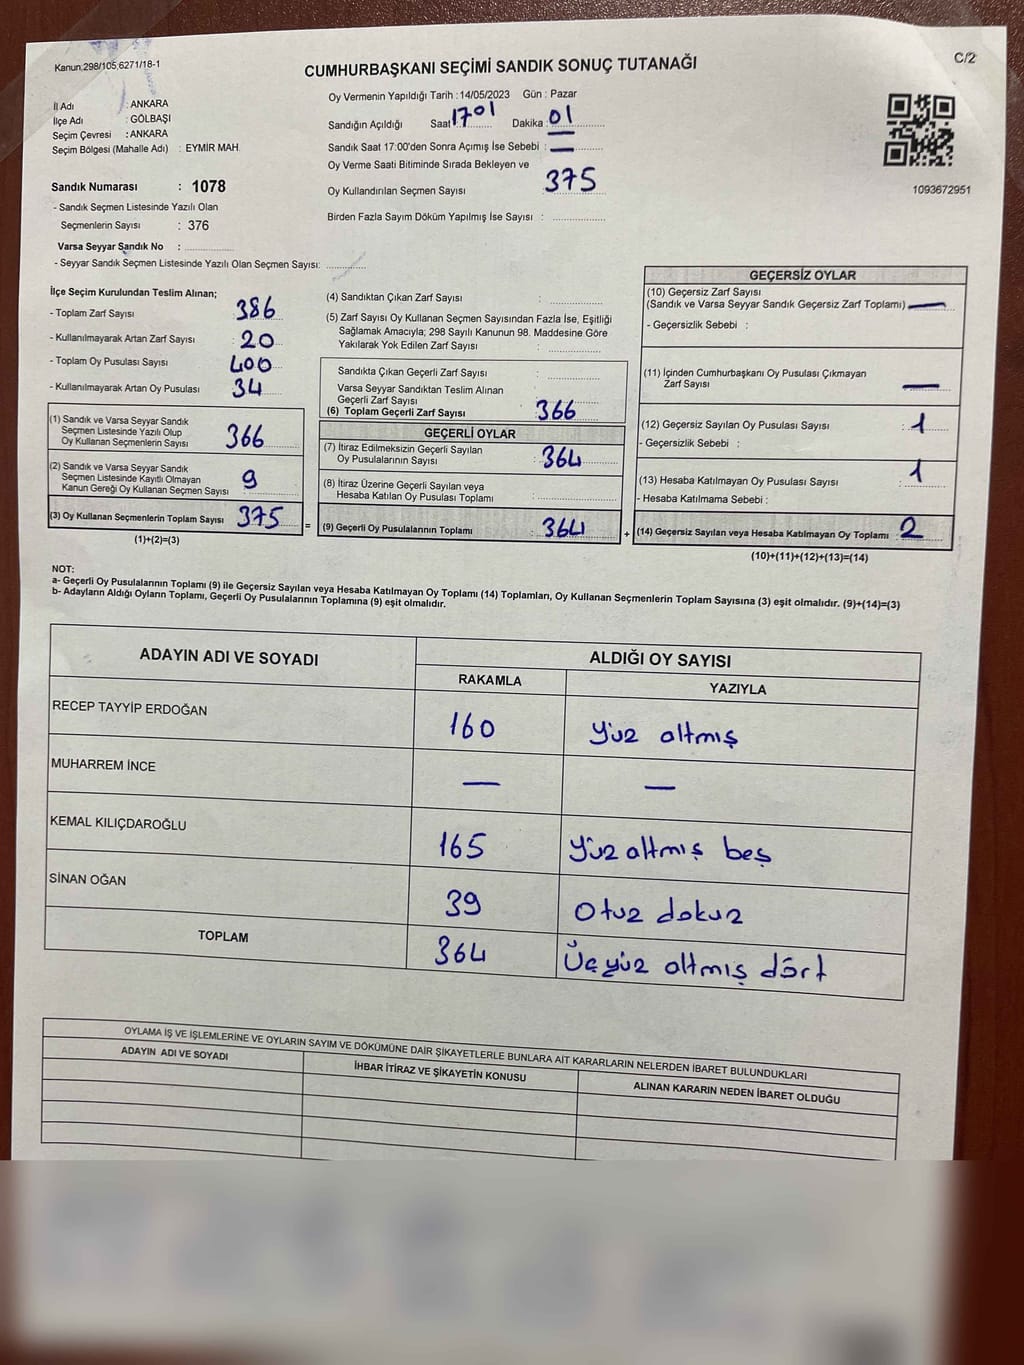 Kanun:298/105,6271/18-1
C/2
CUMHURBAŞKANI SEÇİMİ SANDIK SONUÇ TUTANAĞI
İl Adı : ANKARA
İlçe Adı : GÖLBAŞI
Seçim Çevresi : ANKARA
Seçim Bölgesi (Mahalle Adı) : EYMİR MAH.
Sandık Numarası : 1078
- Sandık Seçmen Listesinde Yazılı Olan
Seçmenlerin Sayısı : 376
Varsa Seyyar Sandık No :
- Seyyar Sandık Seçmen Listesinde Yazılı Olan Seçmen Sayısı:
Oy Vermenin Yapıldığı Tarih : 14/05/2023 Gün : Pazar
Sandığın Açıldığı Saat 1701 Dakika : 01
Sandık Saat 17:00'den Sonra Açımış İse Sebebi : —
Oy Verme Saati Bitiminde Sırada Bekleyen ve
Oy Kullandırılan Seçmen Sayısı 375
Birden Fazla Sayım Döküm Yapılmış İse Sayısı :
1093672951
İlçe Seçim Kurulundan Teslim Alınan;
- Toplam Zarf Sayısı 386
- Kullanılmayarak Artan Zarf Sayısı : 20
- Toplam Oy Pusulası Sayısı 400
- Kullanılmayarak Artan Oy Pusulası 34
(1) Sandık ve Varsa Seyyar Sandık
Seçmen Listesinde Yazılı Olup
Oy Kullanan Seçmenlerin Sayısı 366
(2) Sandık ve Varsa Seyyar Sandık
Seçmen Listesinde Kayıtlı Olmayan
Kanun Gereği Oy Kullanan Seçmen Sayısı 9
(3) Oy Kullanan Seçmenlerin Toplam Sayısı 375
(1)+(2)=(3)
=
(4) Sandıktan Çıkan Zarf Sayısı :
(5) Zarf Sayısı Oy Kullanan Seçmen Sayısından Fazla İse, Eşitliği
Sağlamak Amacıyla; 298 Sayılı Kanunun 98. Maddesine Göre
Yakılarak Yok Edilen Zarf Sayısı :
Sandıkta Çıkan Geçerli Zarf Sayısı :
Varsa Seyyar Sandıktan Teslim Alınan
Geçerli Zarf Sayısı :
(6) Toplam Geçerli Zarf Sayısı 366
GEÇERLİ OYLAR
(7) İtiraz Edilmeksizin Geçerli Sayılan
Oy Pusulalarının Sayısı : 364
(8) İtiraz Üzerine Geçerli Sayılan veya
Hesaba Katılan Oy Pusulası Toplamı :
(9) Geçerli Oy Pusulalarının Toplamı : 364
+
GEÇERSİZ OYLAR
(10) Geçersiz Zarf Sayısı
(Sandık ve Varsa Seyyar Sandık Geçersiz Zarf Toplamı) —
- Geçersizlik Sebebi :
(11) İçinden Cumhurbaşkanı Oy Pusulası Çıkmayan
Zarf Sayısı —
(12) Geçersiz Sayılan Oy Pusulası Sayısı : 1
- Geçersizlik Sebebi :
(13) Hesaba Katılmayan Oy Pusulası Sayısı 1
- Hesaba Katılmama Sebebi :
(14) Geçersiz Sayılan veya Hesaba Katılmayan Oy Toplamı : 2
(10)+(11)+(12)+(13)=(14)
NOT:
a- Geçerli Oy Pusulalarının Toplamı (9) ile Geçersiz Sayılan veya Hesaba Katılmayan Oy Toplamı (14) Toplamları, Oy Kullanan Seçmenlerin Toplam Sayısına (3) eşit olmalıdır. (9)+(14)=(3)
b- Adayların Aldığı Oyların Toplamı, Geçerli Oy Pusulalarının Toplamına (9) eşit olmalıdır.
ADAYIN ADI VE SOYADI ALDIĞI OY SAYISI
RAKAMLA YAZIYLA
RECEP TAYYİP ERDOĞAN 160 Yüz altmış
MUHARREM İNCE — —
KEMAL KILIÇDAROĞLU 165 Yüz altmış beş
SİNAN OĞAN 39 Otuz dokuz
TOPLAM 364 Üçyüz altmış dört
OYLAMA İŞ VE İŞLEMLERİNE VE OYLARIN SAYIM VE DÖKÜMÜNE DAİR ŞİKAYETLERLE BUNLARA AİT KARARLARIN NELERDEN İBARET BULUNDUKLARI
ADAYIN ADI VE SOYADI İHBAR İTİRAZ VE ŞİKAYETİN KONUSU ALINAN KARARIN NEDEN İBARET OLDUĞU